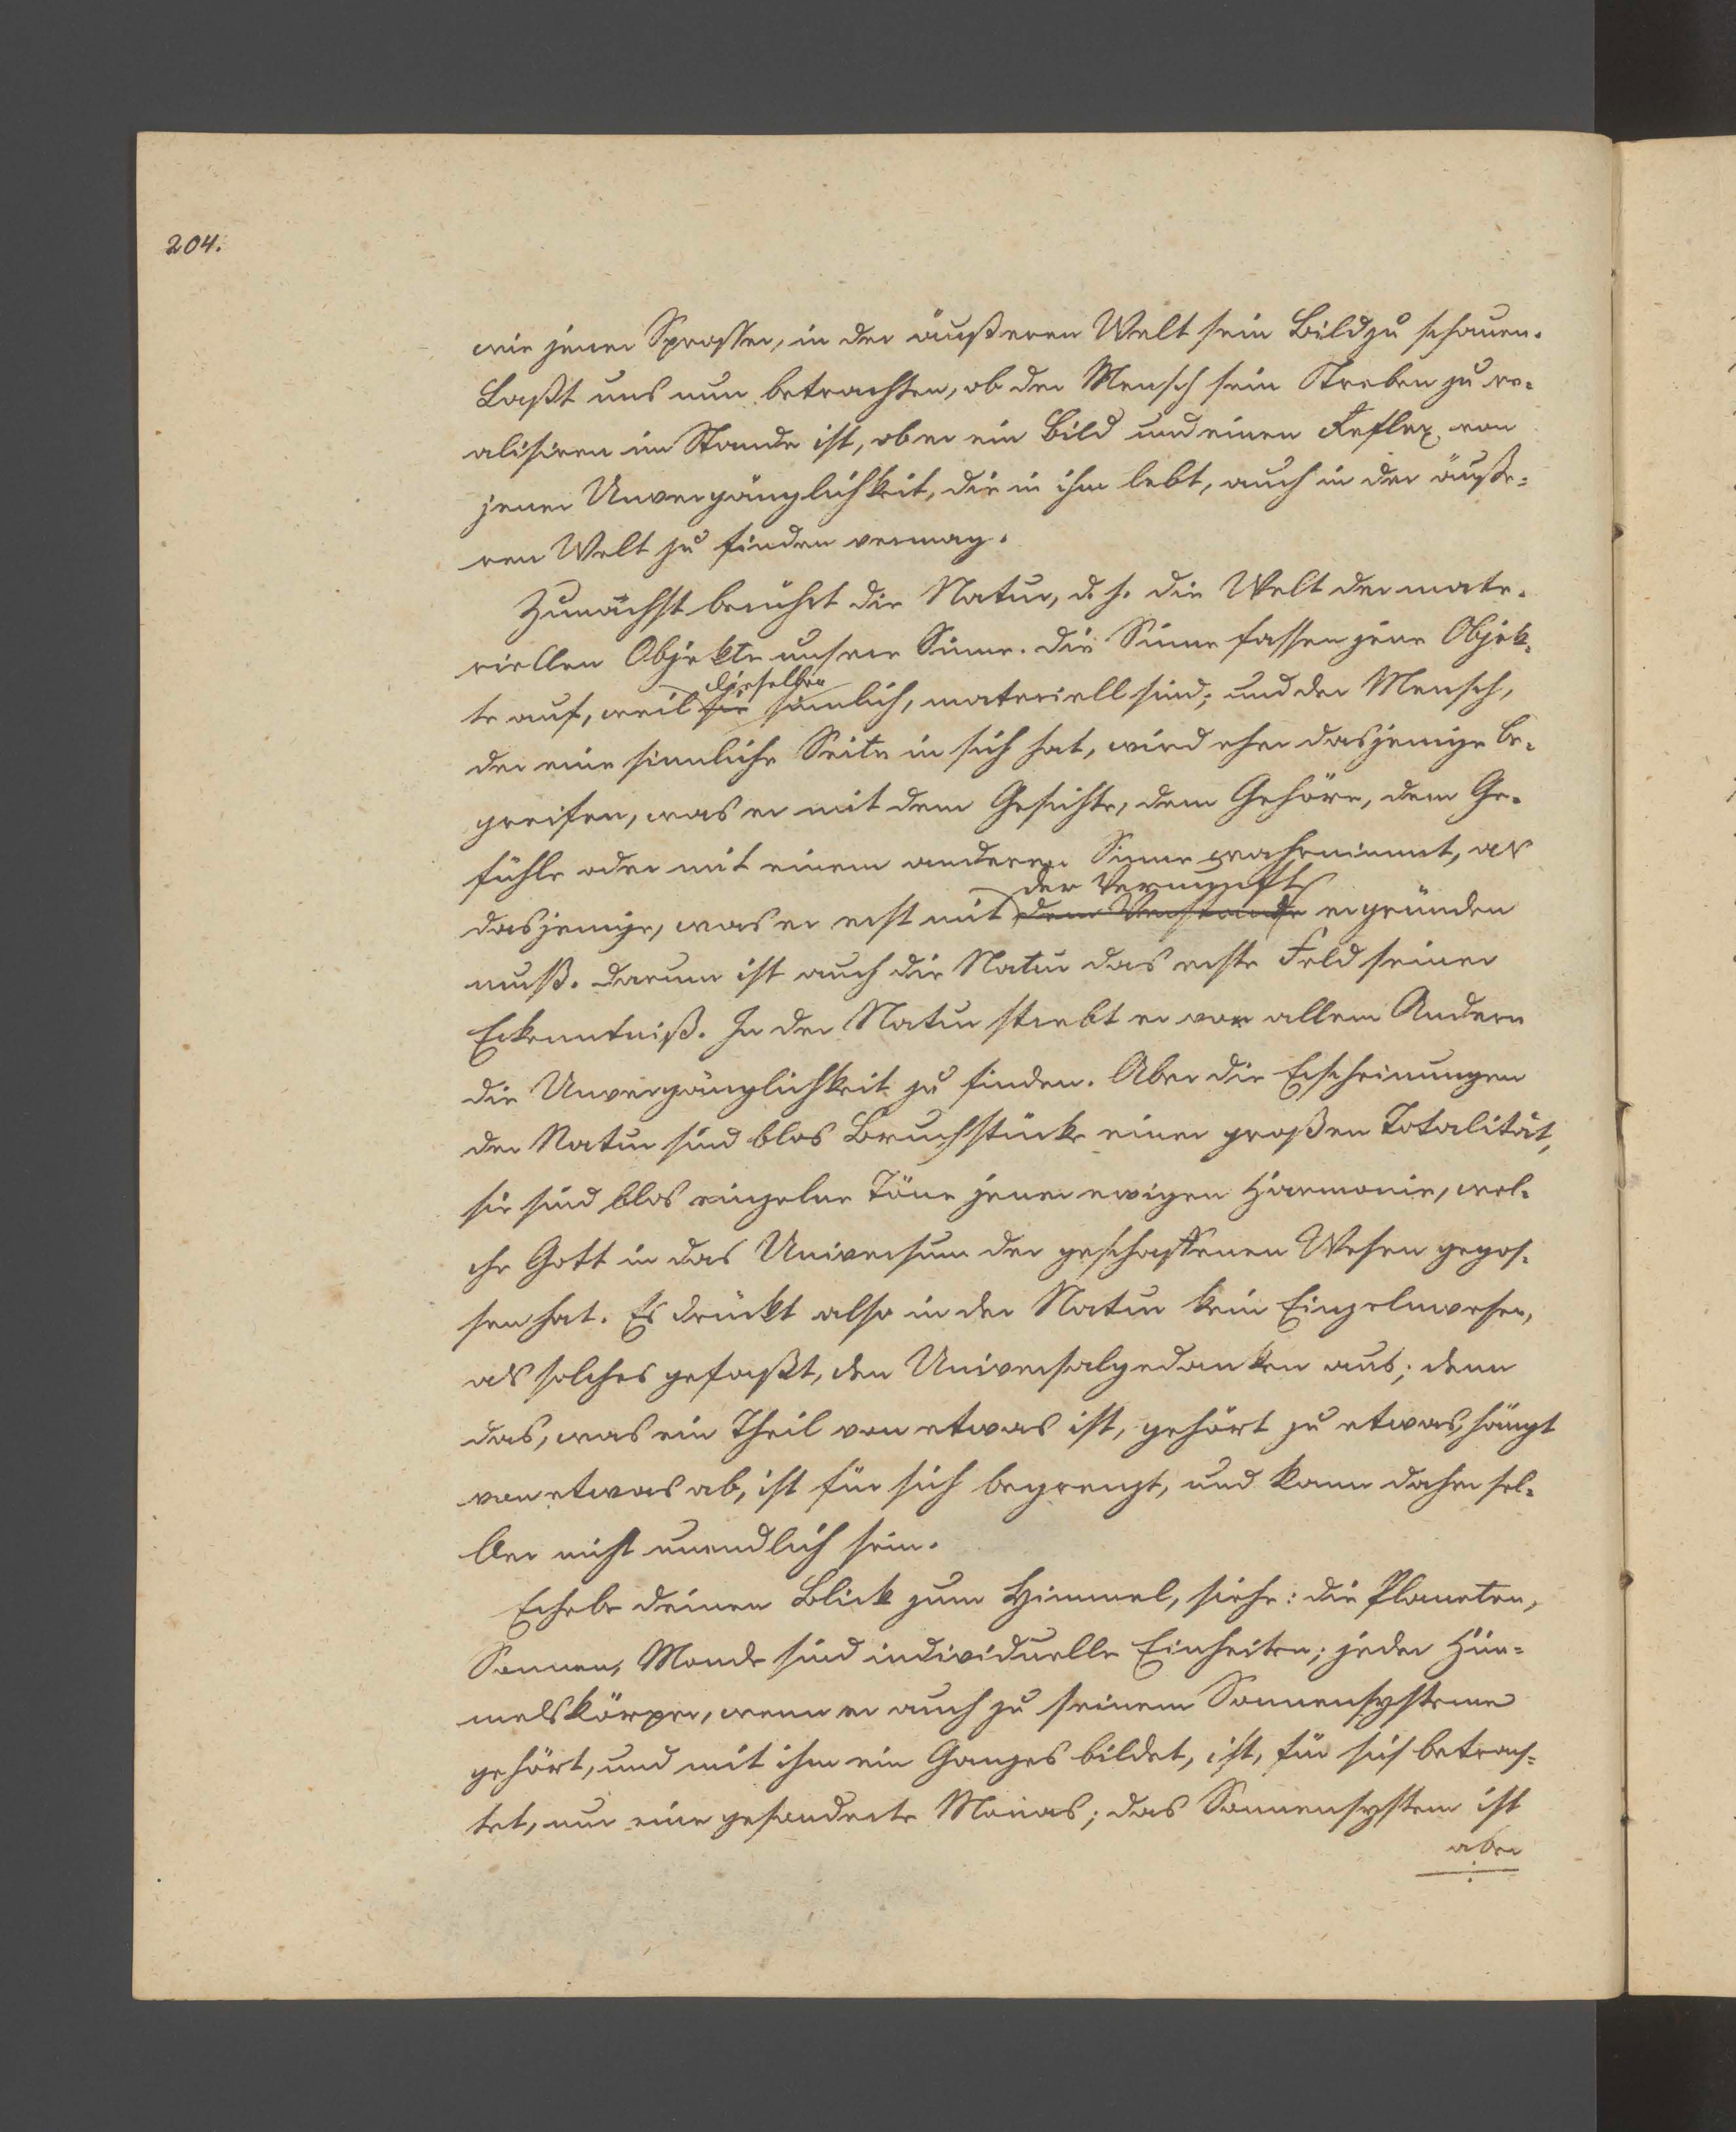 204.
wie jener Sprosser, in der äußeren Welt sein Bild zu schauen.
Laßt uns nun betrachten, ob der Mensch sein Streben zu re-
alisiren im Stande ist, ob er ein Bild und einen Reflex von
jener Unvergänglichkeit, die in ihm lebt, auch in der äuße-
ren Welt zu finden vermag.
Zunächst berührt die Natur, d. h. die Welt der mate-
riellen Objekte unsere Sinne. Die Sinne fassen jene Objek-
dieselben
te auf, weil sie sinnlich, materiell sind; und der Mensch,
der eine sinnliche Seite in sich hat, wird eher dasjenige be-
greifen, was er mit dem Gesichte, dem Gehöre, dem Ge-
fühle oder mit einem anderen Sinne wahrnimmt, als
der Vernunft
dasjenige, was er erst mit dem Verstande ergründen
muß. Darum ist auch die Natur das erste Feld seiner
Erkenntniß. In der Natur strebt er vor allem Andern
die Unvergänglichkeit zu finden. Aber die Erscheinungen
der Natur sind blos Bruchstücke einer großen Totalität,
sie sind blos einzelne Töne jener ewigen Harmonie, wel-
che Gott in das Universum der geschaffenen Wesen gegos-
sen hat. Es drückt also in der Natur kein Einzelnwesen,
als solches gefaßt, den Universalgedanken aus; denn
das, was ein Theil von etwas ist, gehört zu etwas, hängt
von etwas ab, ist für sich begrenzt, und kann daher sel-
ber nicht unendlich sein.
Erhebe deinen Blick zum Himmel, siehe: die Planeten,
Sonnen, Monde sind individuelle Einheiten; jeder Him-
melskörper, wenn er auch zu seinem Sonnensysteme
gehört, und mit ihm ein Ganzes bildet, ist, für sich betrach-
tet, nur eine gesonderte Monas; das Sonnensystem ist
aber